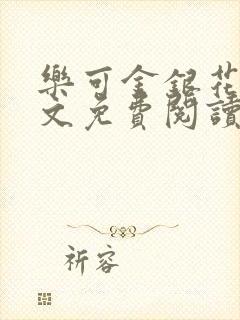 樂可金銀花
文免費閱讀
祈容